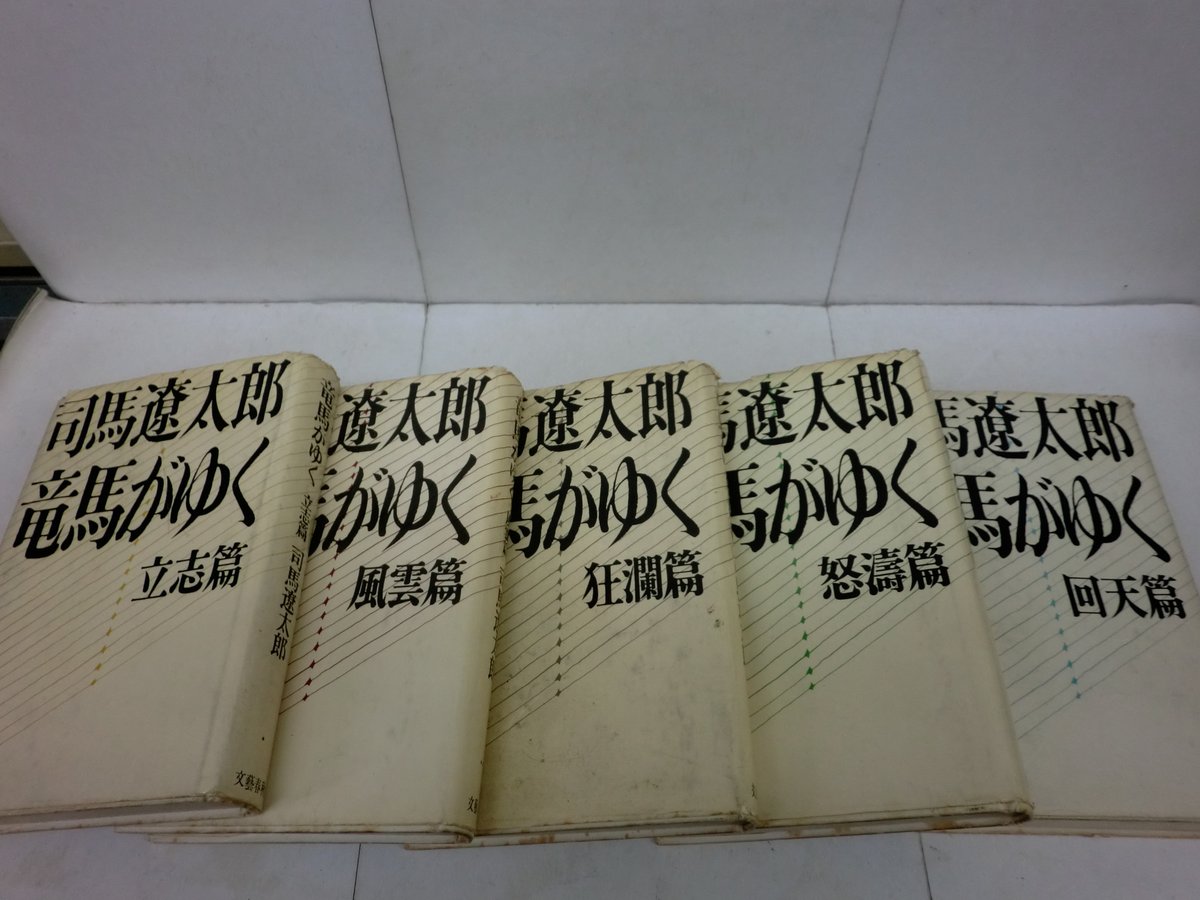 司馬遼太郎
竜馬がゆく
立志篇
竜馬がゆく 立志篇 司馬遼太郎
文藝春
遼太郎
馬がゆく
風雲篇
文
遼太郎
馬がゆく
狂瀾篇
馬遼太郎
馬がゆく
怒濤篇
馬遼太郎
馬がゆく
回天篇